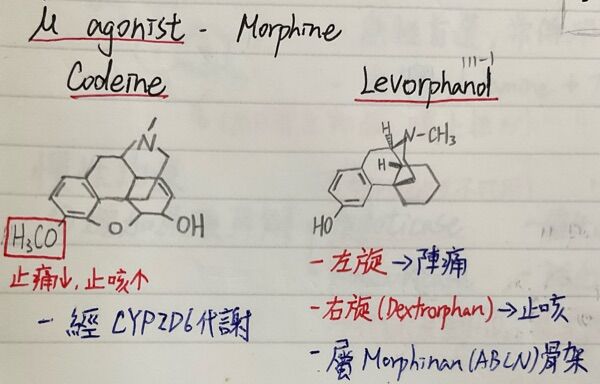 μ agonist - Morphine
Codeine
N
OH
H₃CO
O
止痛↓, 止咳个
- 經 CYP2D6代謝
Levorphanol
H
N-CH₃
H
HO
- 左旋 → 陣痛
- 右旋 (Dextrorphan) → 止咳
- 屬 Morphinan (ABCN) 骨架